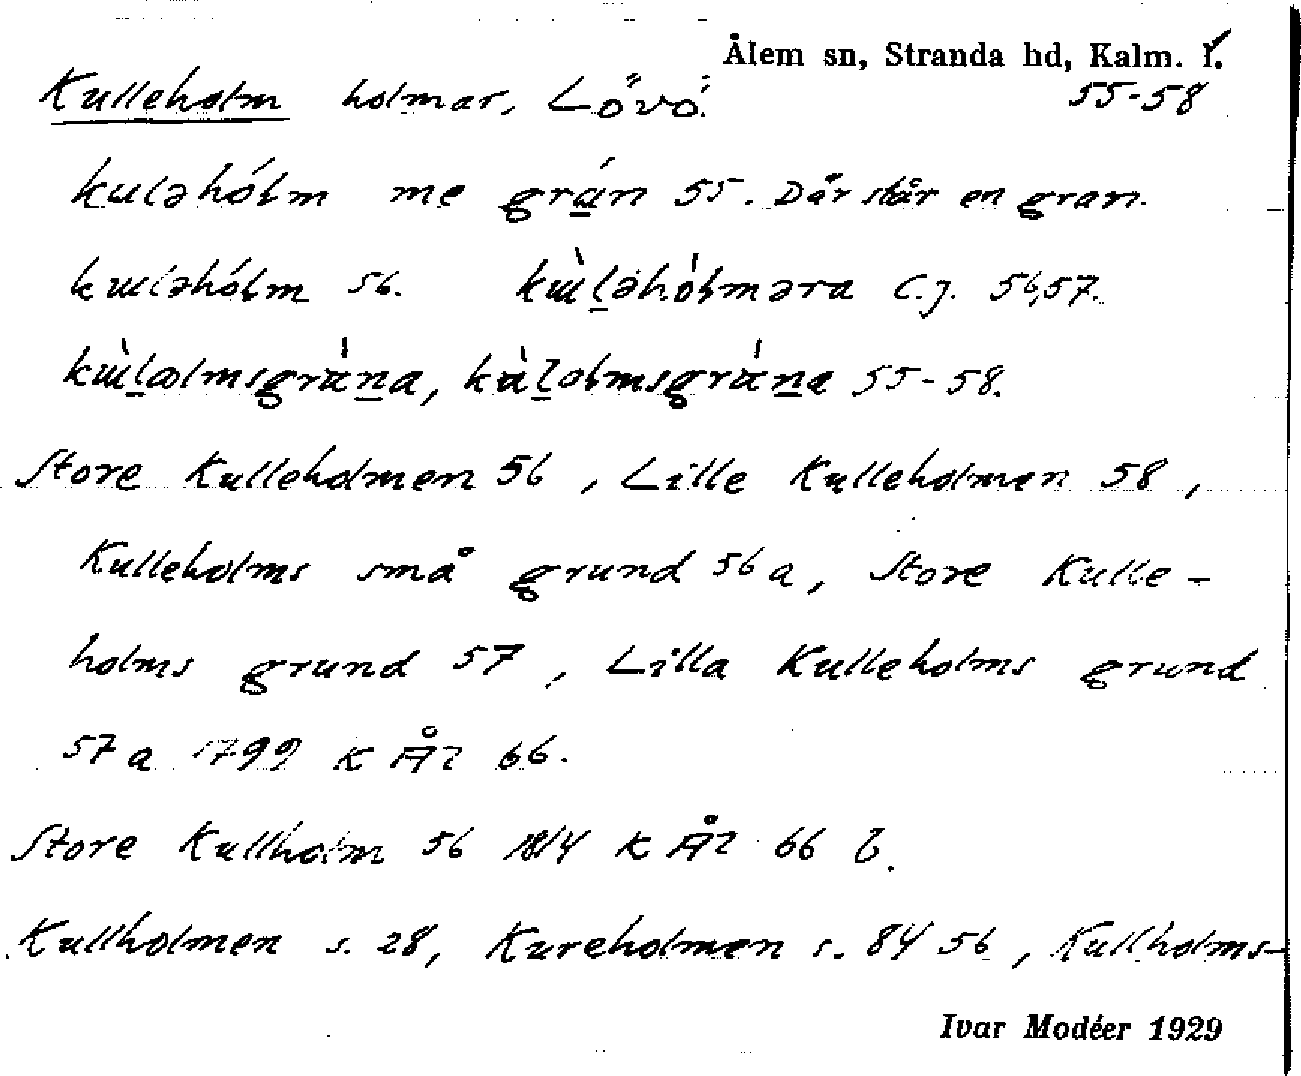 Ålem sn, Stranda hd, Kalm. l.
Kulleholm holmar, Lövö. 55-58
kuləhólm me grán 55. Där står en gran.
kuləhólm 56. kùləhólməra C.J. 56,57.
kùlolmsgrána, kùlolmsgráne 55-58.
Store Kulleholmen 56, Lille Kulleholmen 58,
Kulleholms små grund 56a, Store Kulle-
holms grund 57, Lilla Kulleholms grund
57a 1799 K Ål 66.
Store Kullholm 56 1814 K Ål 66 b.
Kullholmen s. 28, Kureholmen s. 84 56, Kullholms-
Ivar Modéer 1929